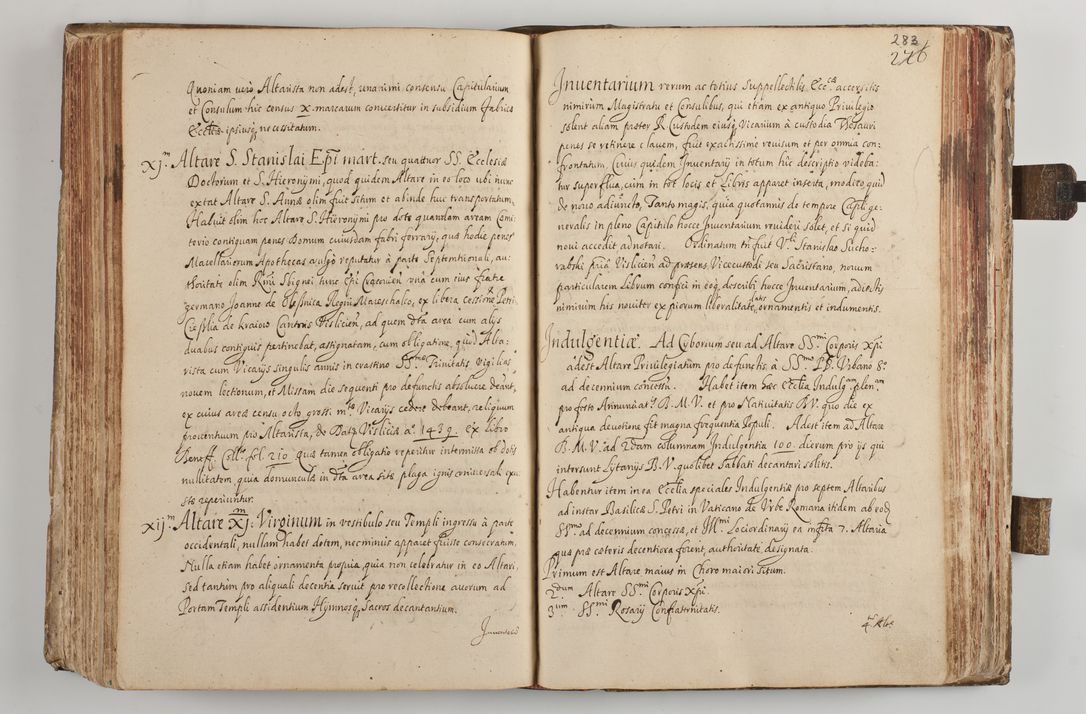 Quoniam vero Altarista non adest, unanimi consensu Capitularium
et Consulum hic census X marcarum convertitur in subsidium fabricæ
Ecclæ ipsiusq necessitatum.
XJ.m Altare S. Stanislai Epi mart. seu quatuor SS. Ecclesiæ
Doctorum et S. Hieronymi, quod quidem Altare in eo loco ubi nunc
extat Altare S. Annæ olim fuit situm et abinde huc transportatum,
Habuit olim hoc Altare S. Hieronymi pro dote quandam aream Cœmi-
terio contiguam penes Domum cuiusdam fabri ferrarij, quæ hodie penes
Macellariorum Apothecas a vulgo reputatur à parte Septemtrionali, au-
thoritate olim Rmi Sbignei tunc Epi Cracovien una cum eius fratre
germano Joanne de Olesnica Regni Mareschalco, ex libera Cessione Petri
de Cantoris Vislicien, ad quem dta area cum alijs
duabus contiguis pertinebat, assignatam, cum obligatione, quod Alta-
rista cum Vicarijs singulis annis in crastino SSmæ Trinitatis Vigilias
novem lectionum, et Missam die sequenti pro defunctis absolvere debeat,
ex cuius areæ censu octo grossi Vicarijs cedere debeant, reliquum
proventuum pro Altarista, de Data Visliciæ aº. 1439. ex libro
Beneff. Coll. fol. 210. Quæ tamen obligatio reperitur intermissa ob dotis
nullitatem, quia domunculæ in dta area sitæ plaga ignis conversæ exu-
stæ reperiuntur.
XIJm Altare XJ. m Virginum in vestibulo seu Templi ingressu à parte
occidentali, nullam habet dotem, nec minus apparet fuisse consecratum,
Nulla etiam habet ornamenta propria, quia non celebratur in eo Altari,
sed tantum pro aliquali decentia servit pro recollectione averum ad
Portam Templi assidentium Hymnosq Sacros decantantium.
Inventariū
283
246
Inventarium rerum ac totius Suppellectilis Ecccæ accersitis
nimirum Magistratu et Consulibus, qui etiam ex antiquo Privilegio
solent aliam præter R. Custodem eiusq Vicarium à custodia Thesauri
penes se retinere clavem, fuit exactissime revisum et per omnia con-
frontatum, Cuius quidem Inventarij in totum hic descriptio videba-
tur superflua, cum in tot locis et Libris apparet inserta, modico quid
de novo adiuncto, Tanto magis, quia quotannis de tempore Capli ge-
neralis in pleno Capitulo hocce Inventarium revideri solet, et si quid
novi accedit adnotari. Ordinatum tn fuit Vli Stanislao Sucho-
rabski Vislicien ad præsens Vicecustodi seu Sacristano, novum
particularem Librum confici in eoq describi hocce Inventarium, adiectis
nimirum his noviter ex piorum liberalitate datis ornamentis et indumentis.
Indulgentiæ. Ad Cyborium seu ad Altare SSmi Corporis Xpi
adest Altare Privilegiatum pro defunctis, à SSmo PP. Urbano 8º
ad decennium concessa. Habet item hæc Ecclia Indulgam plenam
pro festo Annunciats B. M. V. et pro Nativitatis B.V. quo die ex
antiqua devotione fit magna frequentia Populi. Adest item ad Altare
B. M. V. ad 2dam columnam Indulgentia 100. dierum pro ijs qui
intersunt Lytanijs B. V. quolibet Sabbati decantari solitis.
Habentur item in ea Ecclia speciales Indulgentiæ pro septem Altaribus
ad instar Basilicæ S. Petri in Vaticano de Urbe Romana itidem ab eod
SSmo ad decennium concessæ, et Illmi Loci ordinarij ea infta 7. Altaria
quæ præ cæteris decentiora forent, authoritate designata.
Primum est Altare maius in Choro maiori situm.
2dum Altare SSmi Corporis Xpi.
3um SSmi Rosarij Confraternitatis.
4. Altæ